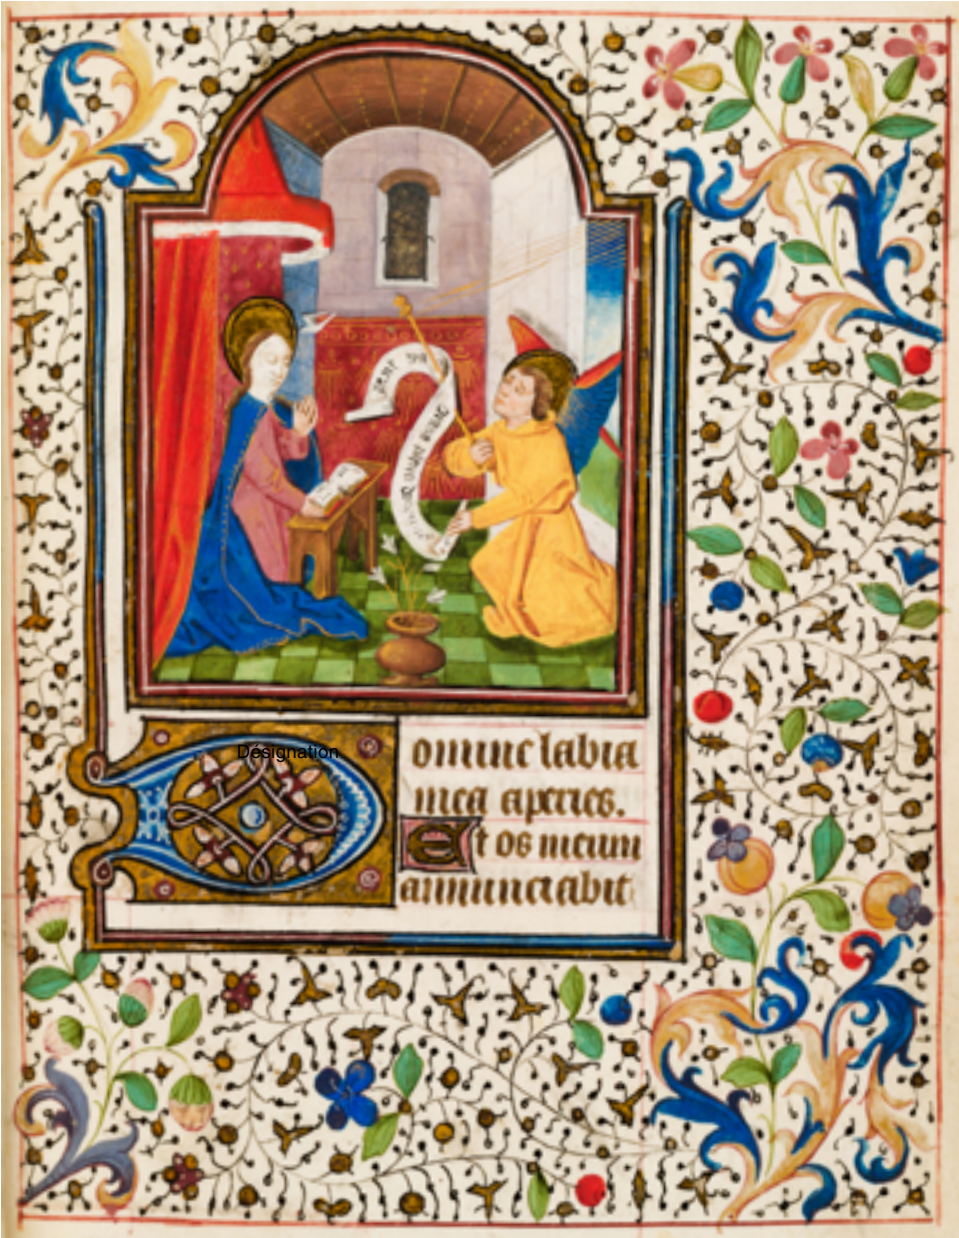 Désignation.
Domine labia
mea aperies.
Et os meum
annunciabit